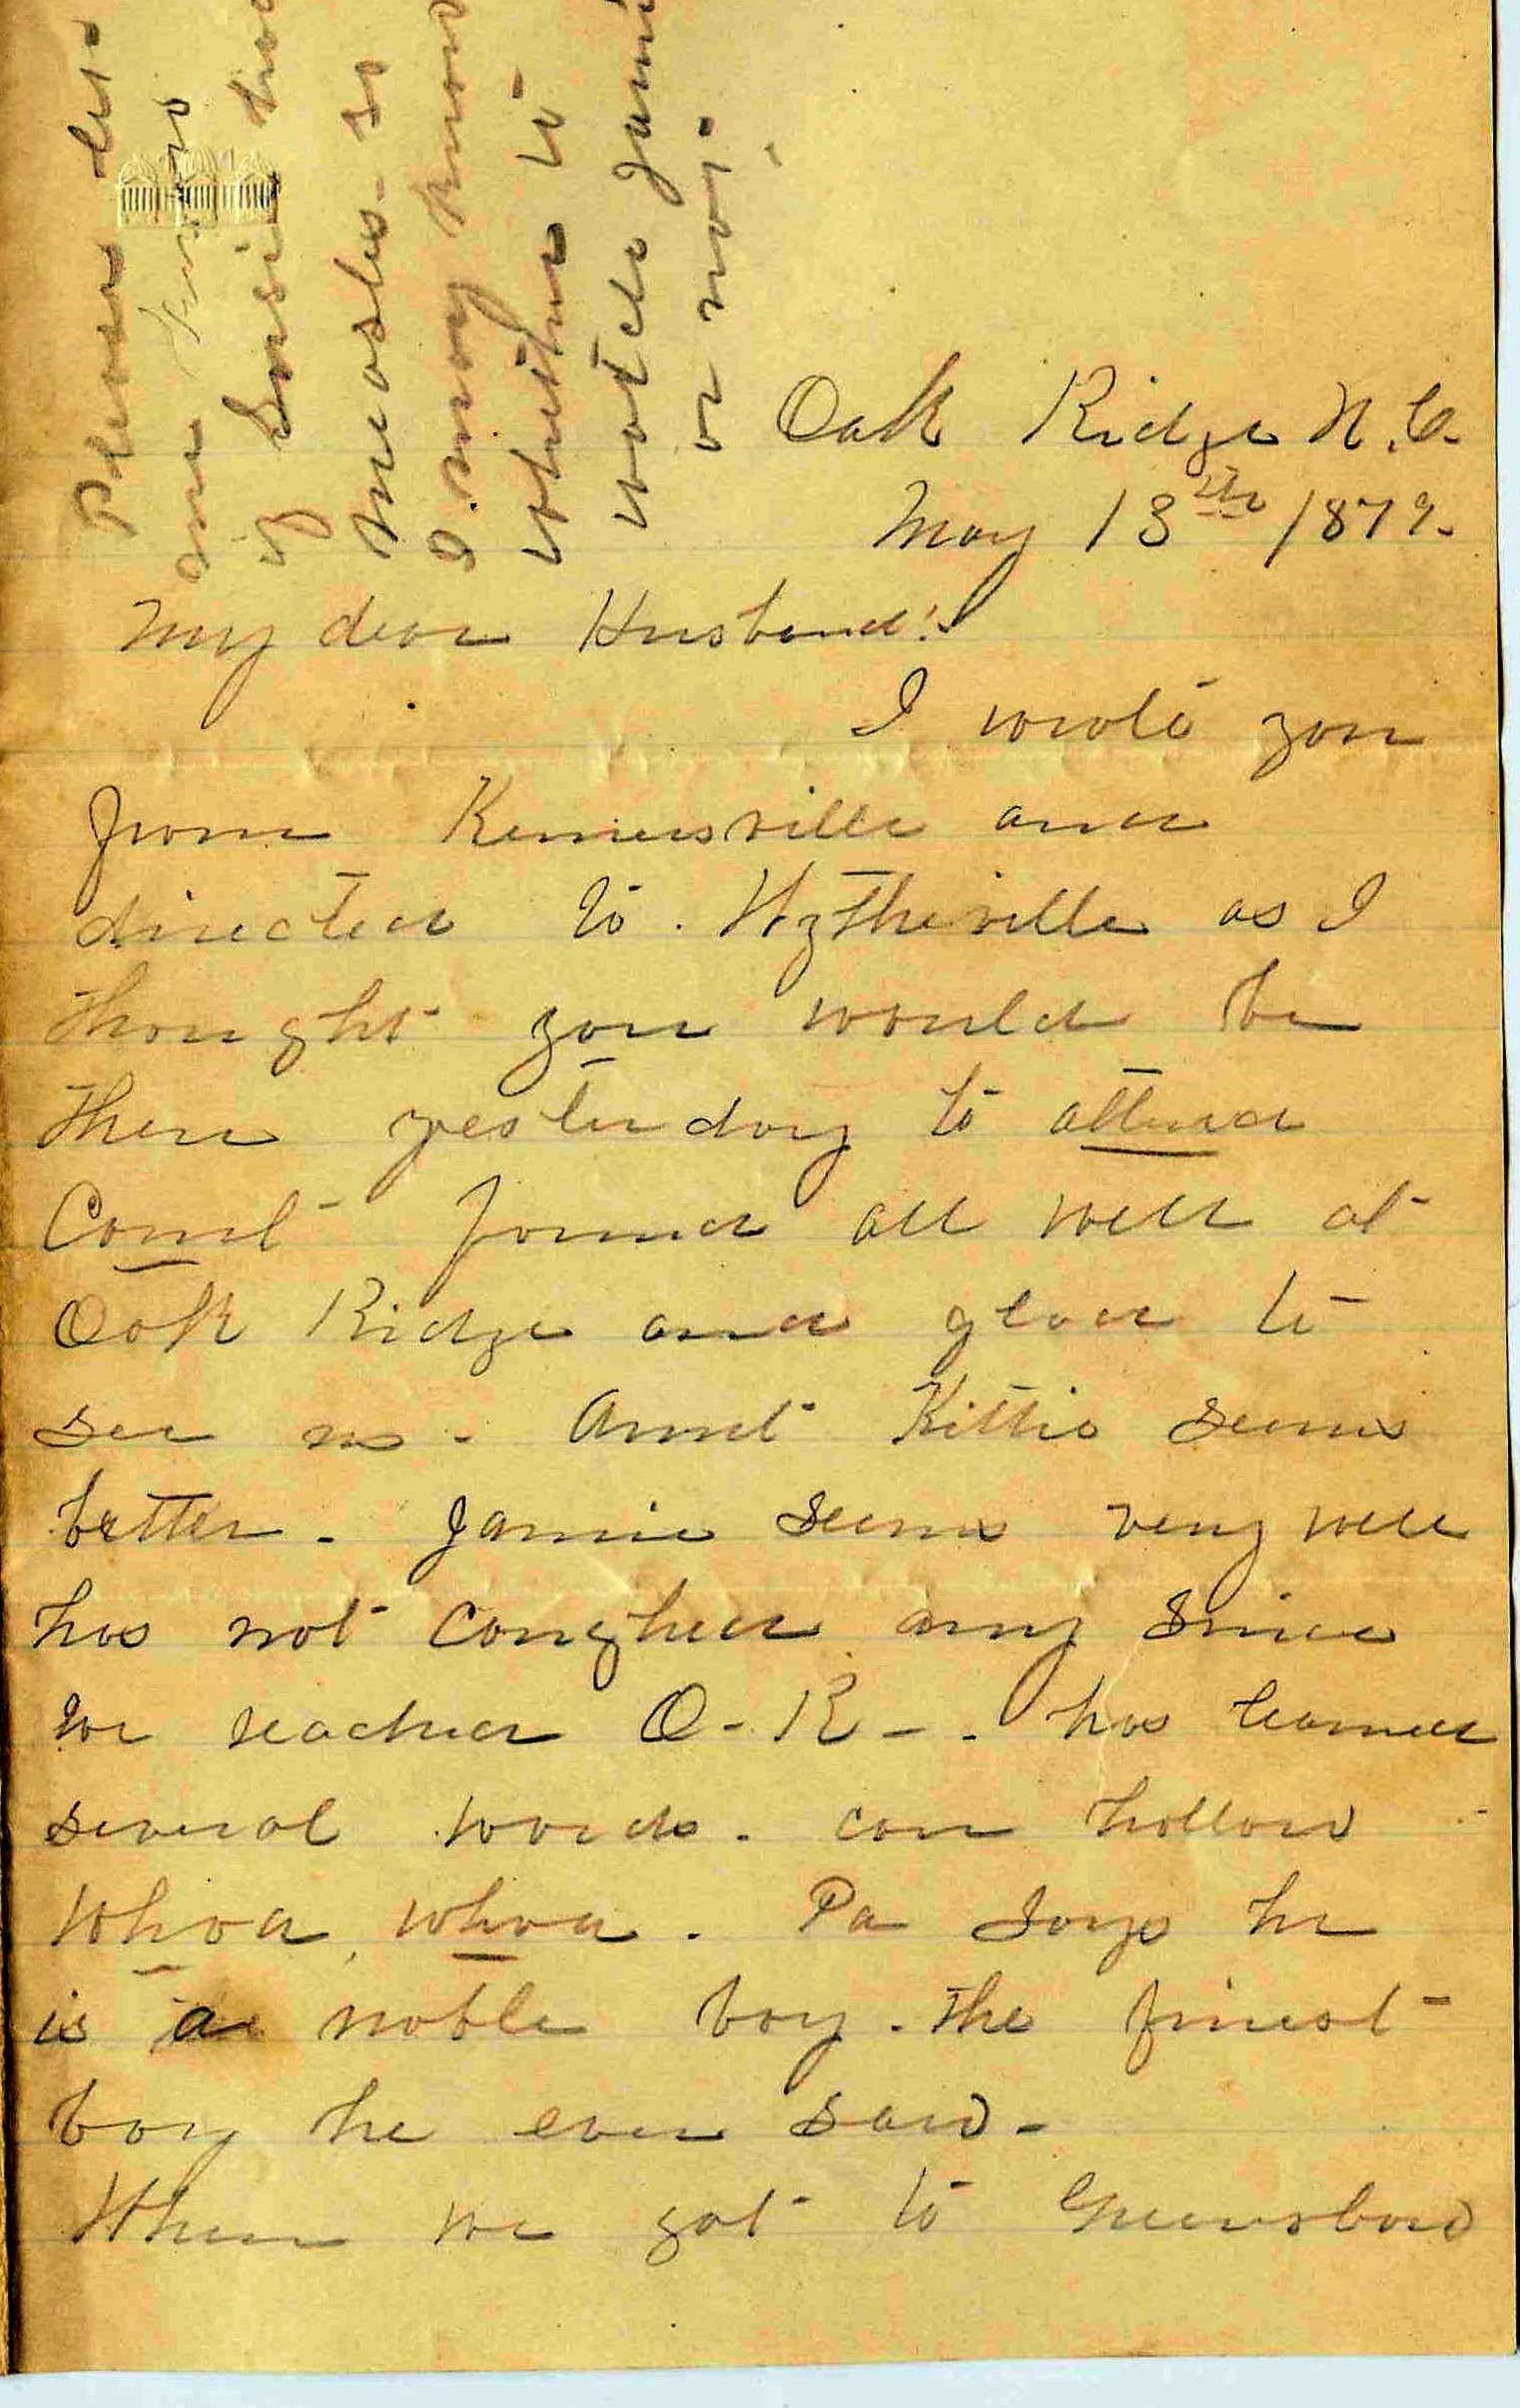 Oak Ridge N.C.
May 13th 1879.
My dear Husband:
I wrote you
from Kernersville and
directed to Wytheville as I
thought you would be
there yesterday to attend
Court found all well at
Oak Ridge and glad to
see us - Aunt Kittie seems
better - Jamie seems very well
has not coughed any since
we reached O - R - . has learned
several words. can hollow
Whoa, whoa. Pa says he
is a noble boy. the finest
boy he ever saw -
When we got to Greensboro
Please let
me know
if Susie had
measles - so
I may know
whether to
watch Jamie
or not -